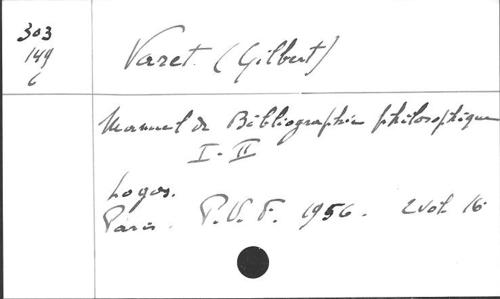 303
149
6
Varet. (Gilbert)
Manuel de Bibliographie philosophique
I-II
Logos.
Paris. P.U.F. 1956. 2 vol. 16